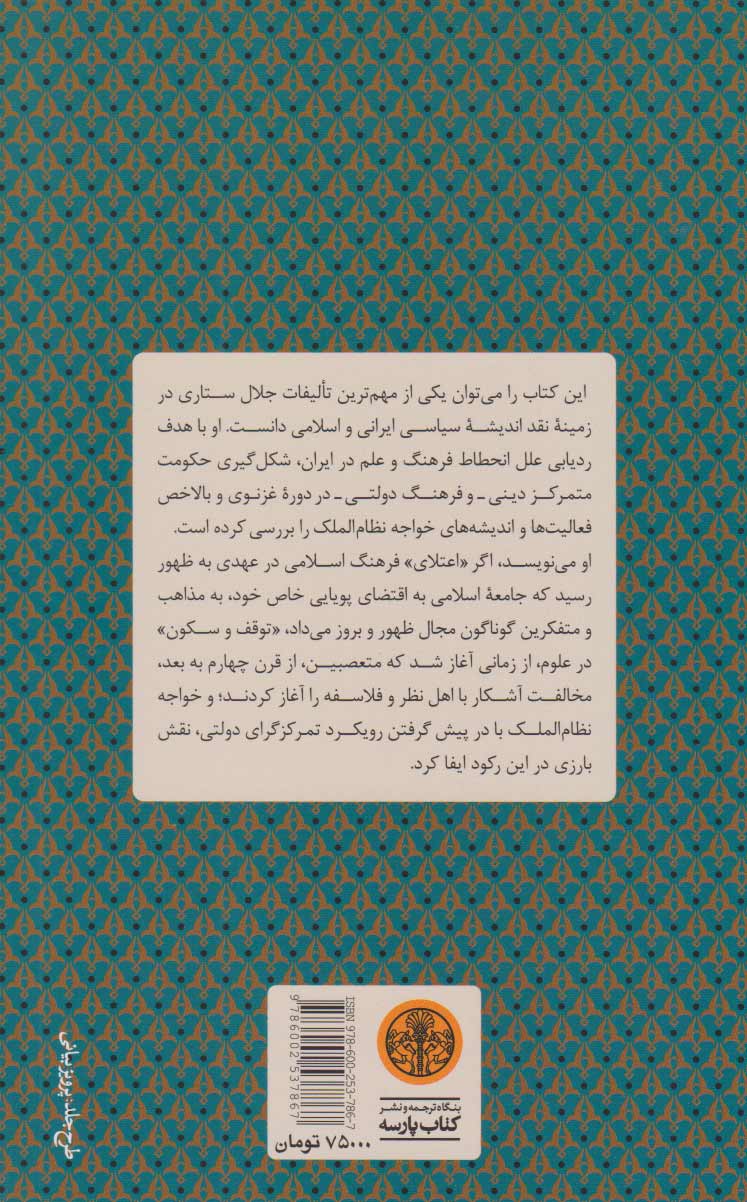 این کتاب را می‌توان یکی از مهم‌ترین تألیفات جلال ستاری در
زمینهٔ نقد اندیشهٔ سیاسی ایرانی و اسلامی دانست. او با هدف
ردیابی علل انحطاط فرهنگ و علم در ایران، شکل‌گیری حکومت
متمرکز دینی ـ و فرهنگ دولتی ـ در دورهٔ غزنوی و بالاخص
فعالیت‌ها و اندیشه‌های خواجه نظام‌الملک را بررسی کرده است.
او می‌نویسد، اگر «اعتلای» فرهنگ اسلامی در عهدی به ظهور
رسید که جامعهٔ اسلامی به اقتضای پویایی خاص خود، به مذاهب
و متفکرین گوناگون مجال ظهور و بروز می‌داد، «توقف و سکون»
در علوم، از زمانی آغاز شد که متعصبین، از قرن چهارم به بعد،
مخالفت آشکار با اهل نظر و فلاسفه را آغاز کردند؛ و خواجه
نظام‌الملک با در پیش گرفتن رویکرد تمرکزگرای دولتی، نقش
بارزی در این رکود ایفا کرد.
بنگاه ترجمه و نشر
کتاب پارسه
ISBN 978-600-253-786-7
9786002537867
۷۵۰۰۰ تومان
طرح جلد: پرویز بیانی